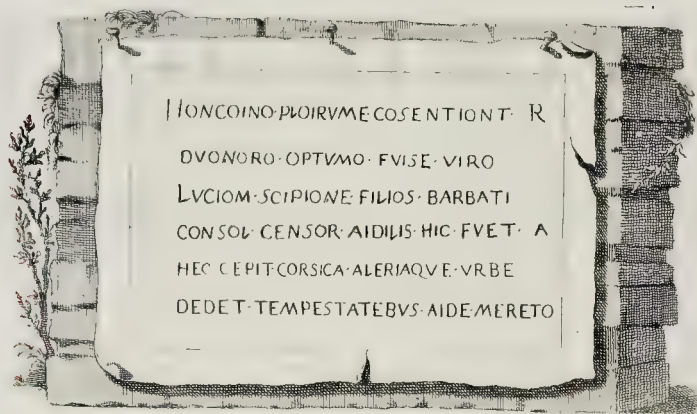 HONCOINO·PLOIRVMECOSENTIONT· R
DVONORO·OPTVMO·FVISE·VIRO
LVCIOM·SCIPIONE·FILIOS·BARBATI
CONSOL·CENSOR·AIDILIS·HIC·FVET· A
HEC CEPIT·CORSICA·ALERIAQVE·VRBE
DEDET·TEMPESTATEBVS·AIDE·MERETO